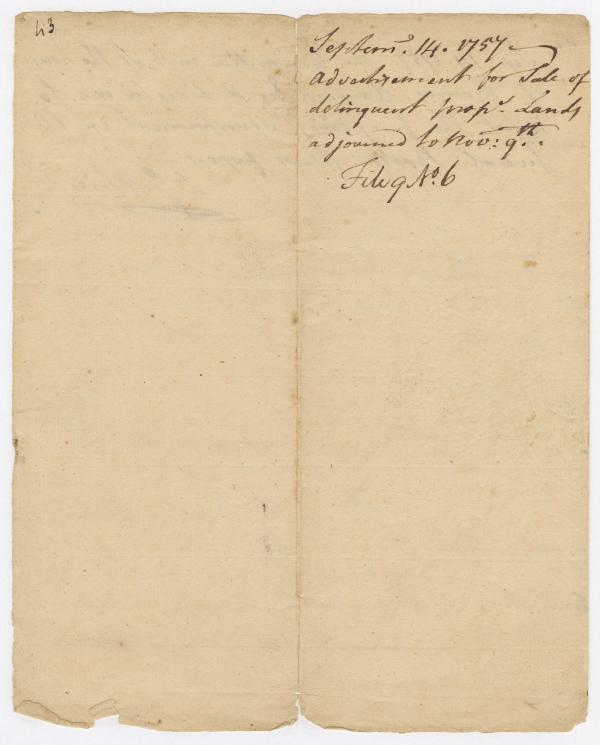 43
Septemr. 14. 1757
advertisement for Sale of
delinquent propr. Lands
adjourned to Novr: 9th.
File 9 No. 6